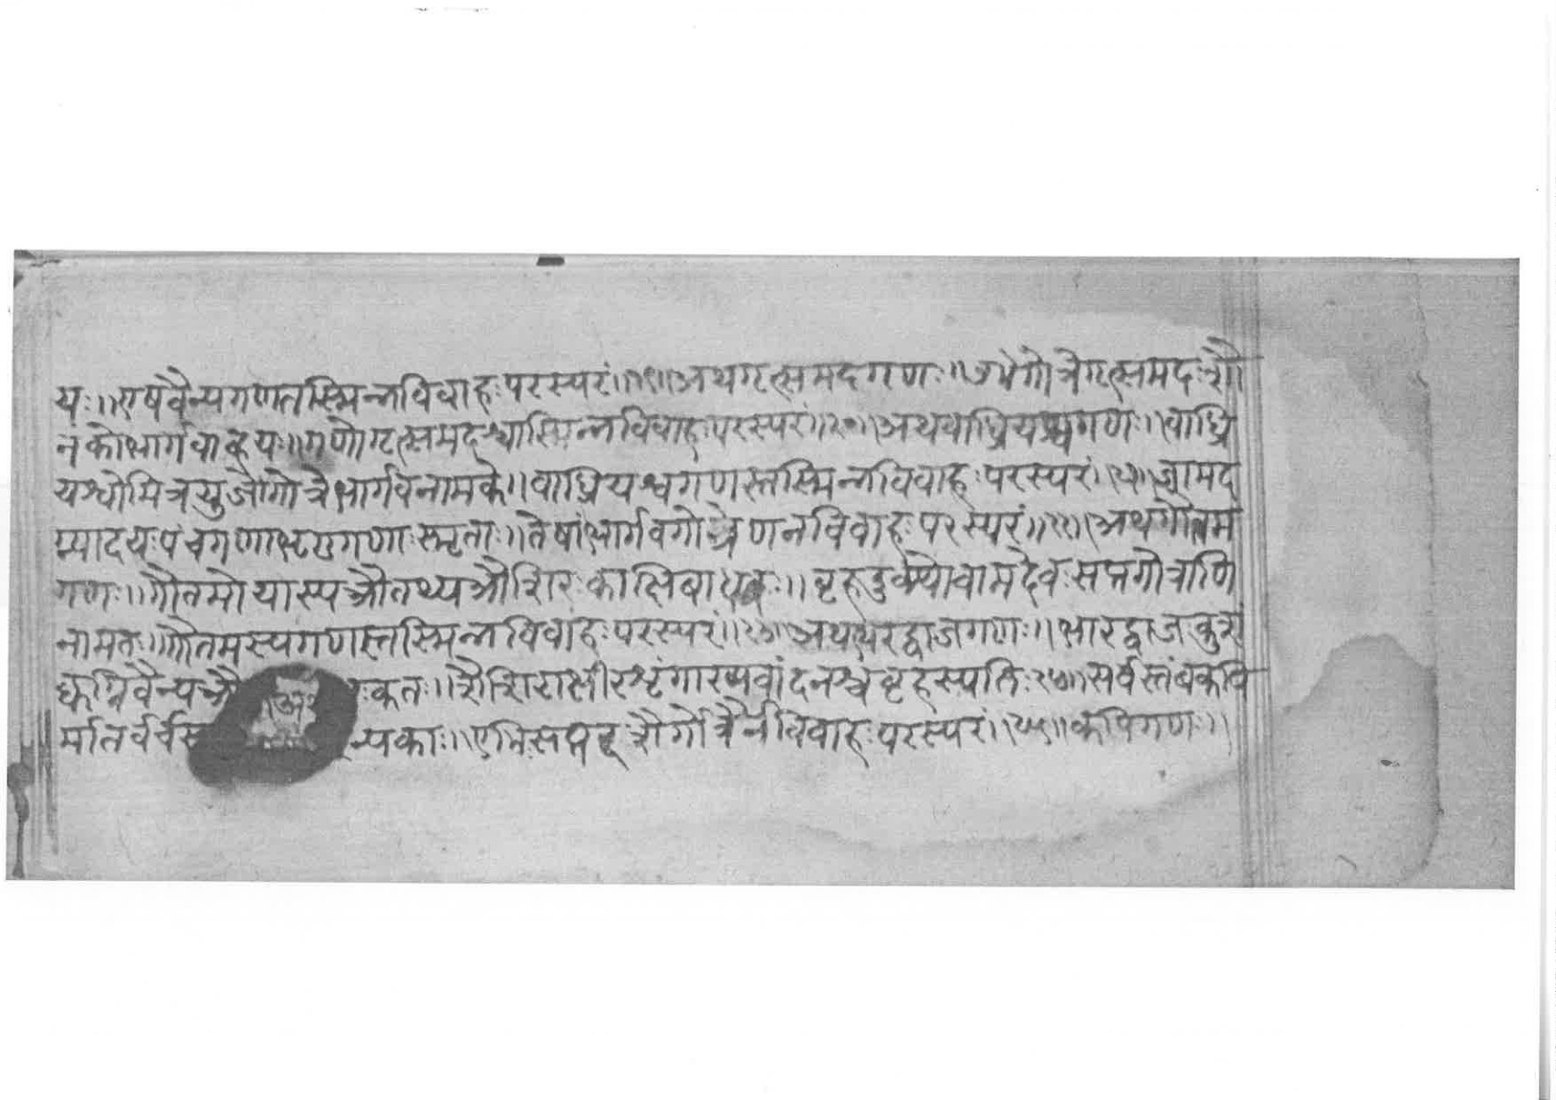 यः॥एषवैन्यगणतस्मिन्नविवाहःपरस्परं॥१९॥अथगृत्समदगणः॥उभेगोत्रेगृत्समदःशौ
नकोभार्गवाव्हयः॥गणोगृत्समदश्चास्मिन्नविवाहःपरस्परं॥२०॥अथवाध्रियश्वगणः॥वाध्रि
यश्वोमित्रयुजौगोत्रेभार्गवनामके॥वाध्रियश्वगणस्तस्मिन्नविवाहःपरस्परं॥२१॥जामद
ग्न्यादयःपंचगणाभृगुगणाःस्मृताः॥तेषांभार्गवगोत्रेणनविवाहःपरस्परं॥२२॥अथगौतम
गणः॥गौतमोयास्पऔतथ्यऔशिरःकाक्षिवा॥बृहदुक्थ्योवामदेवःसप्तगोत्राणि
नामतः॥गौतमस्यगणस्तस्मिन्नविवाहःपरस्परं॥२३॥अथभरद्वाजगणः॥भारद्वाज
ग्निवैन्यऔ कतः॥शैशिरा वांदनश्चबृहस्पतिः२४॥सर्वस्तंबकवि
र्मातर्वर्चस न्यकाः॥एभिःसप्त र्गोत्रैर्नविवाहःपरस्परं॥२५॥कपिगणः॥